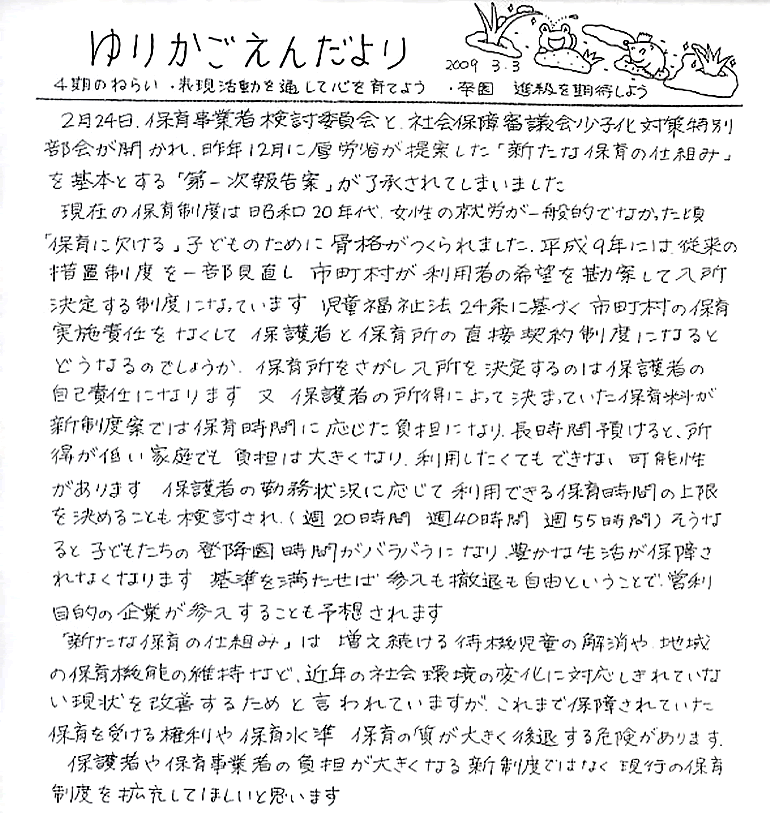 ゆりかごえんだより
2009 3.3
4期のねらい ・表現活動を通して心を育てよう ・卒園 進級を期待しよう
2月24日、保育事業者検討委員会と、社会保障審議会少子化対策特別
部会が開かれ、昨年12月に厚労省が提案した「新たな保育の仕組み」
を基本とする「第一次報告案」が了承されてしまいました
現在の保育制度は昭和20年代、女性の就労が一般的でなかった頃
「保育に欠ける」子どものために骨格がつくられました、平成9年には、従来の
措置制度を一部見直し 市町村が利用者の希望を勘案して入所
決定する制度になっています 児童福祉法24条に基づく市町村の保育
実施責任をなくして 保護者と保育所の直接契約制度になると
どうなるのでしょうか、保育所をさがし入所を決定するのは保護者の
自己責任になります 又 保護者の所得によって決まっていた保育料が
新制度案では保育時間に応じた負担になり、長時間預けると、所
得が低い家庭でも 負担は大きくなり、利用したくてもできない可能性
があります 保護者の勤務状況に応じて利用できる保育時間の上限
を決めることも検討され、(週20時間 週40時間 週55時間)そうな
ると子どもたちの登降園時間がバラバラになり、豊かな生活が保障さ
れなくなります 基準を満たせば参入も撤退も自由ということで、営利
目的の企業が参入することも予想されます
「新たな保育の仕組み」は 増え続ける待機児童の解消や、地域
の保育機能の維持など、近年の社会環境の変化に対応しきれていな
い現状を改善するためと言われていますが、これまで保障されていた
保育を受ける権利や保育水準 保育の質が大きく後退する危険があります。
保護者や保育事業者の負担が大きくなる新制度ではなく現行の保育
制度を拡充してほしいと思います